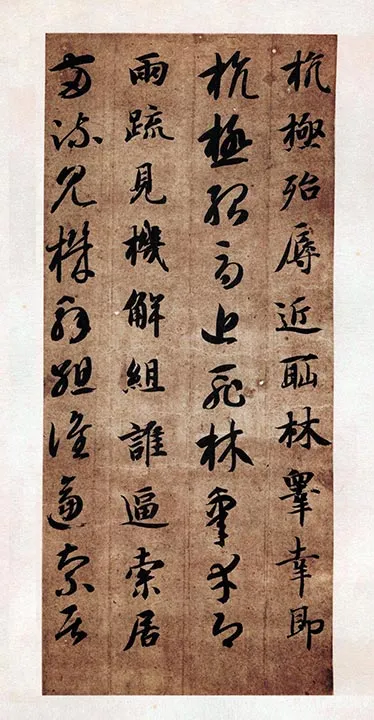 抗極殆辱近恥林皋幸即
抗極殆辱近恥林皋幸即
兩疏見機解組誰逼索居
兩疏見機解組誰逼索居